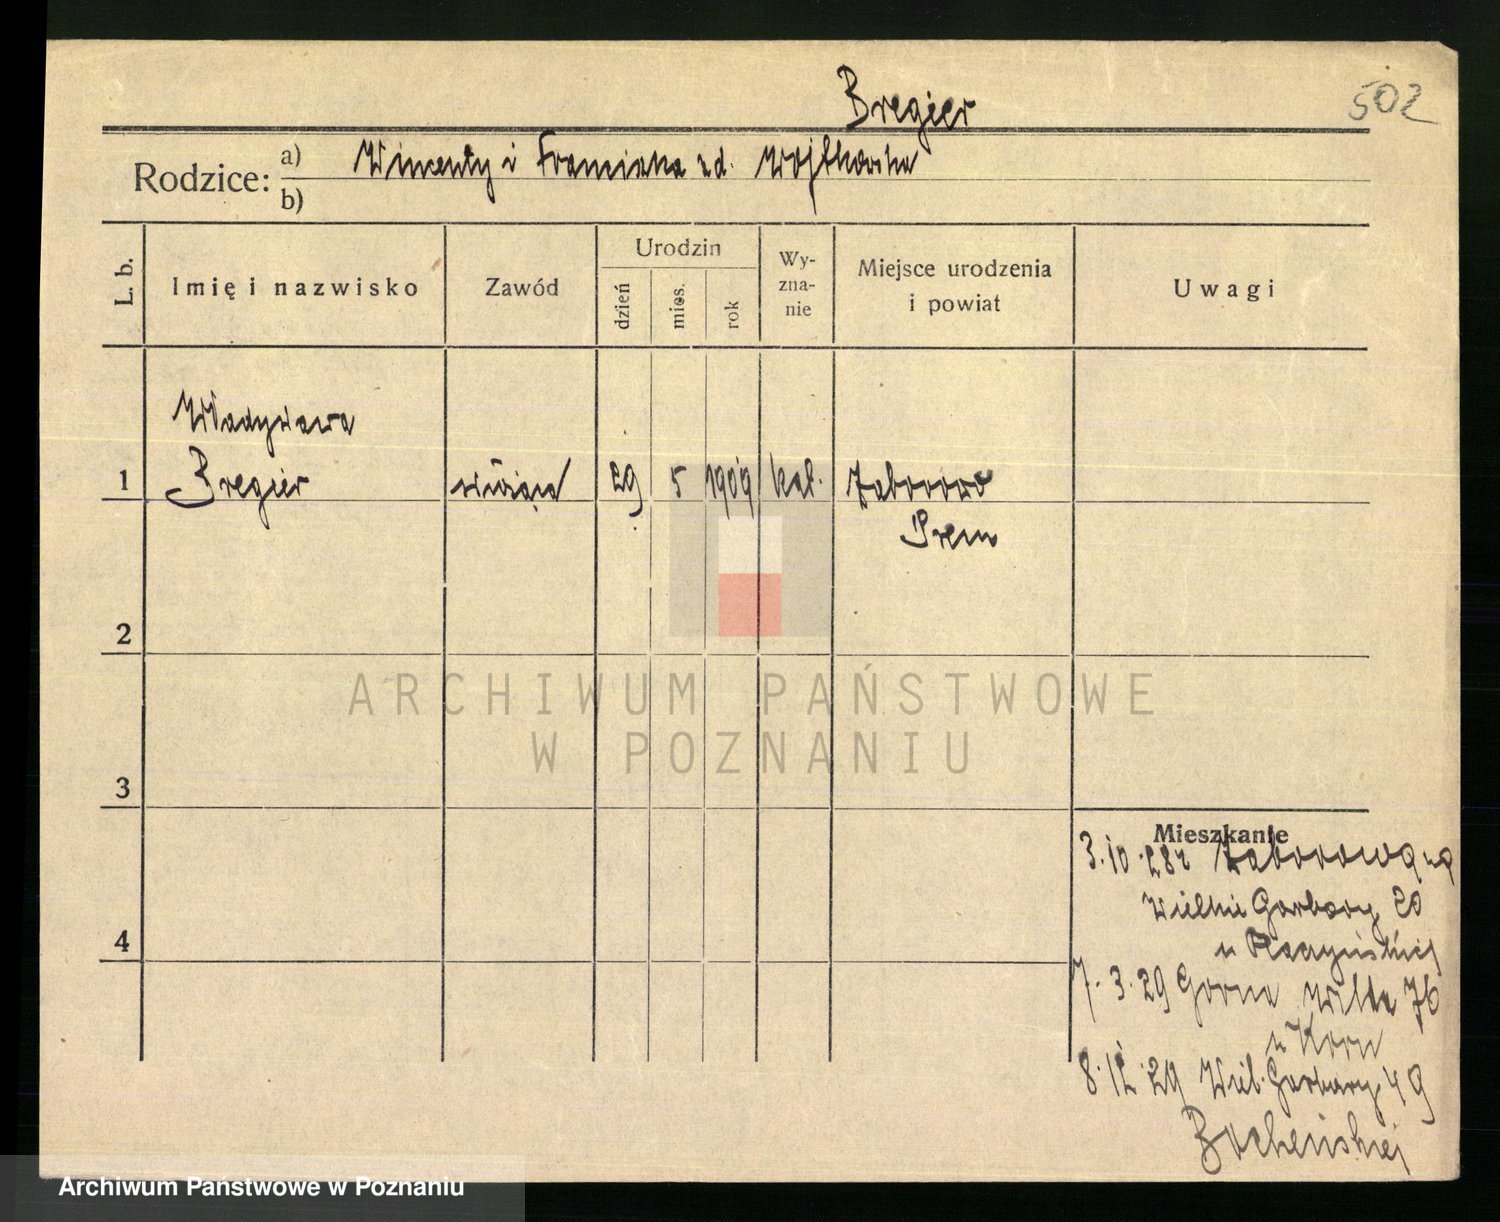 Bregier
502
Rodzice: a) Wincenty i Franciszka zd. Wojtkowska
b)
L. b.
Imię i nazwisko
Zawód
Urodzin
dzień
mies.
rok
Wy-
zna-
nie
Miejsce urodzenia
i powiat
Uwagi
Władysława
1 Bregier służąca 29 5 1909 kat. Zaborowo
Śrem
2
3
4
ARCHIWUM PAŃSTWOWE
W POZNANIU
Mieszkanie
3.10.28r Zaborowo
Wielkie Garbary 20
u
7.3.29 Górna Wilda 76
u Korn
8.12.29 Wiel. Garbary 49
Bocheńskiej
Archiwum Państwowe w Poznaniu